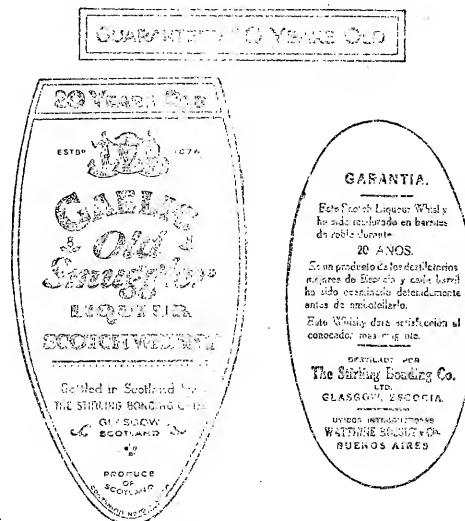 GUARANTEED 20 YEARS OLD
20 YEARS OLD
ESTBD
GAELIC
Old
Smuggler
LIQUEUR
SCOTCH WHISKY
Bottled in Scotland by
THE STIRLING BONDING
GLASGOW
SCOTLAND
PRODUCE
OF
SCOTLAND
GARANTIA.
Este Scotch Liqueur Whisky
ha sido madurado en barriles
de roble durante
20 ANOS.
Es un producto de los destilatorios
mejores de Escocia y cada barril
ha sido examinado detenidamente
antes de embotellarlo.
Este Whisky dara satisfacción al
conocedor mas exigente.
DESTILADO POR
The Stirling Bonding Co.
LTD.
GLASGOW, ESCOCIA.
UNICOS INTRODUCTORES
BUENOS AIRES